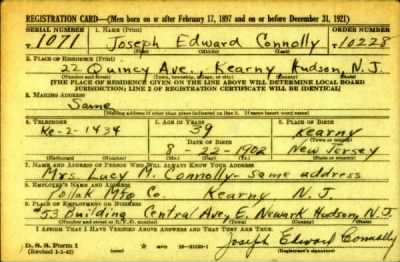 REGISTRATION CARD—(Men born on or after February 17, 1897 and on or before December 31, 1921)
SERIAL NUMBER 1. NAME (Print) ORDER NUMBER
T 1071 Joseph Edward Connolly T 10228
(First) (Middle) (Last)
2. PLACE OF RESIDENCE (Print)
22 Quincy Ave. Kearny Hudson, N.J.
(Number and street) (Town, township, village, or city) (County) (State)
[THE PLACE OF RESIDENCE GIVEN ON THE LINE ABOVE WILL DETERMINE LOCAL BOARD
JURISDICTION; LINE 2 OF REGISTRATION CERTIFICATE WILL BE IDENTICAL]
3. MAILING ADDRESS
Same
[Mailing address if other than place indicated on line 2. If same insert word same]
4. TELEPHONE 5. AGE IN YEARS 6. PLACE OF BIRTH
Ke-2-1434 39 Kearny
DATE OF BIRTH (Town or county)
8-22-1902 New Jersey
(Exchange) (Number) (Mo.) (Day) (Yr.) (State or country)
7. NAME AND ADDRESS OF PERSON WHO WILL ALWAYS KNOW YOUR ADDRESS
Mrs. Lucy M. Connolly - same address
8. EMPLOYER'S NAME AND ADDRESS
Pollak Mfg Co. Kearny N.J.
9. PLACE OF EMPLOYMENT OR BUSINESS
#53 Building Central Ave, E. Newark Hudson, N.J.
(Number and street or R. F. D. number) (Town) (County) (State)
I AFFIRM THAT I HAVE VERIFIED ABOVE ANSWERS AND THAT THEY ARE TRUE.
D. S. S. Form 1
(Revised 1-1-42) (over)
Joseph Edward Connolly
(Registrant's signature)